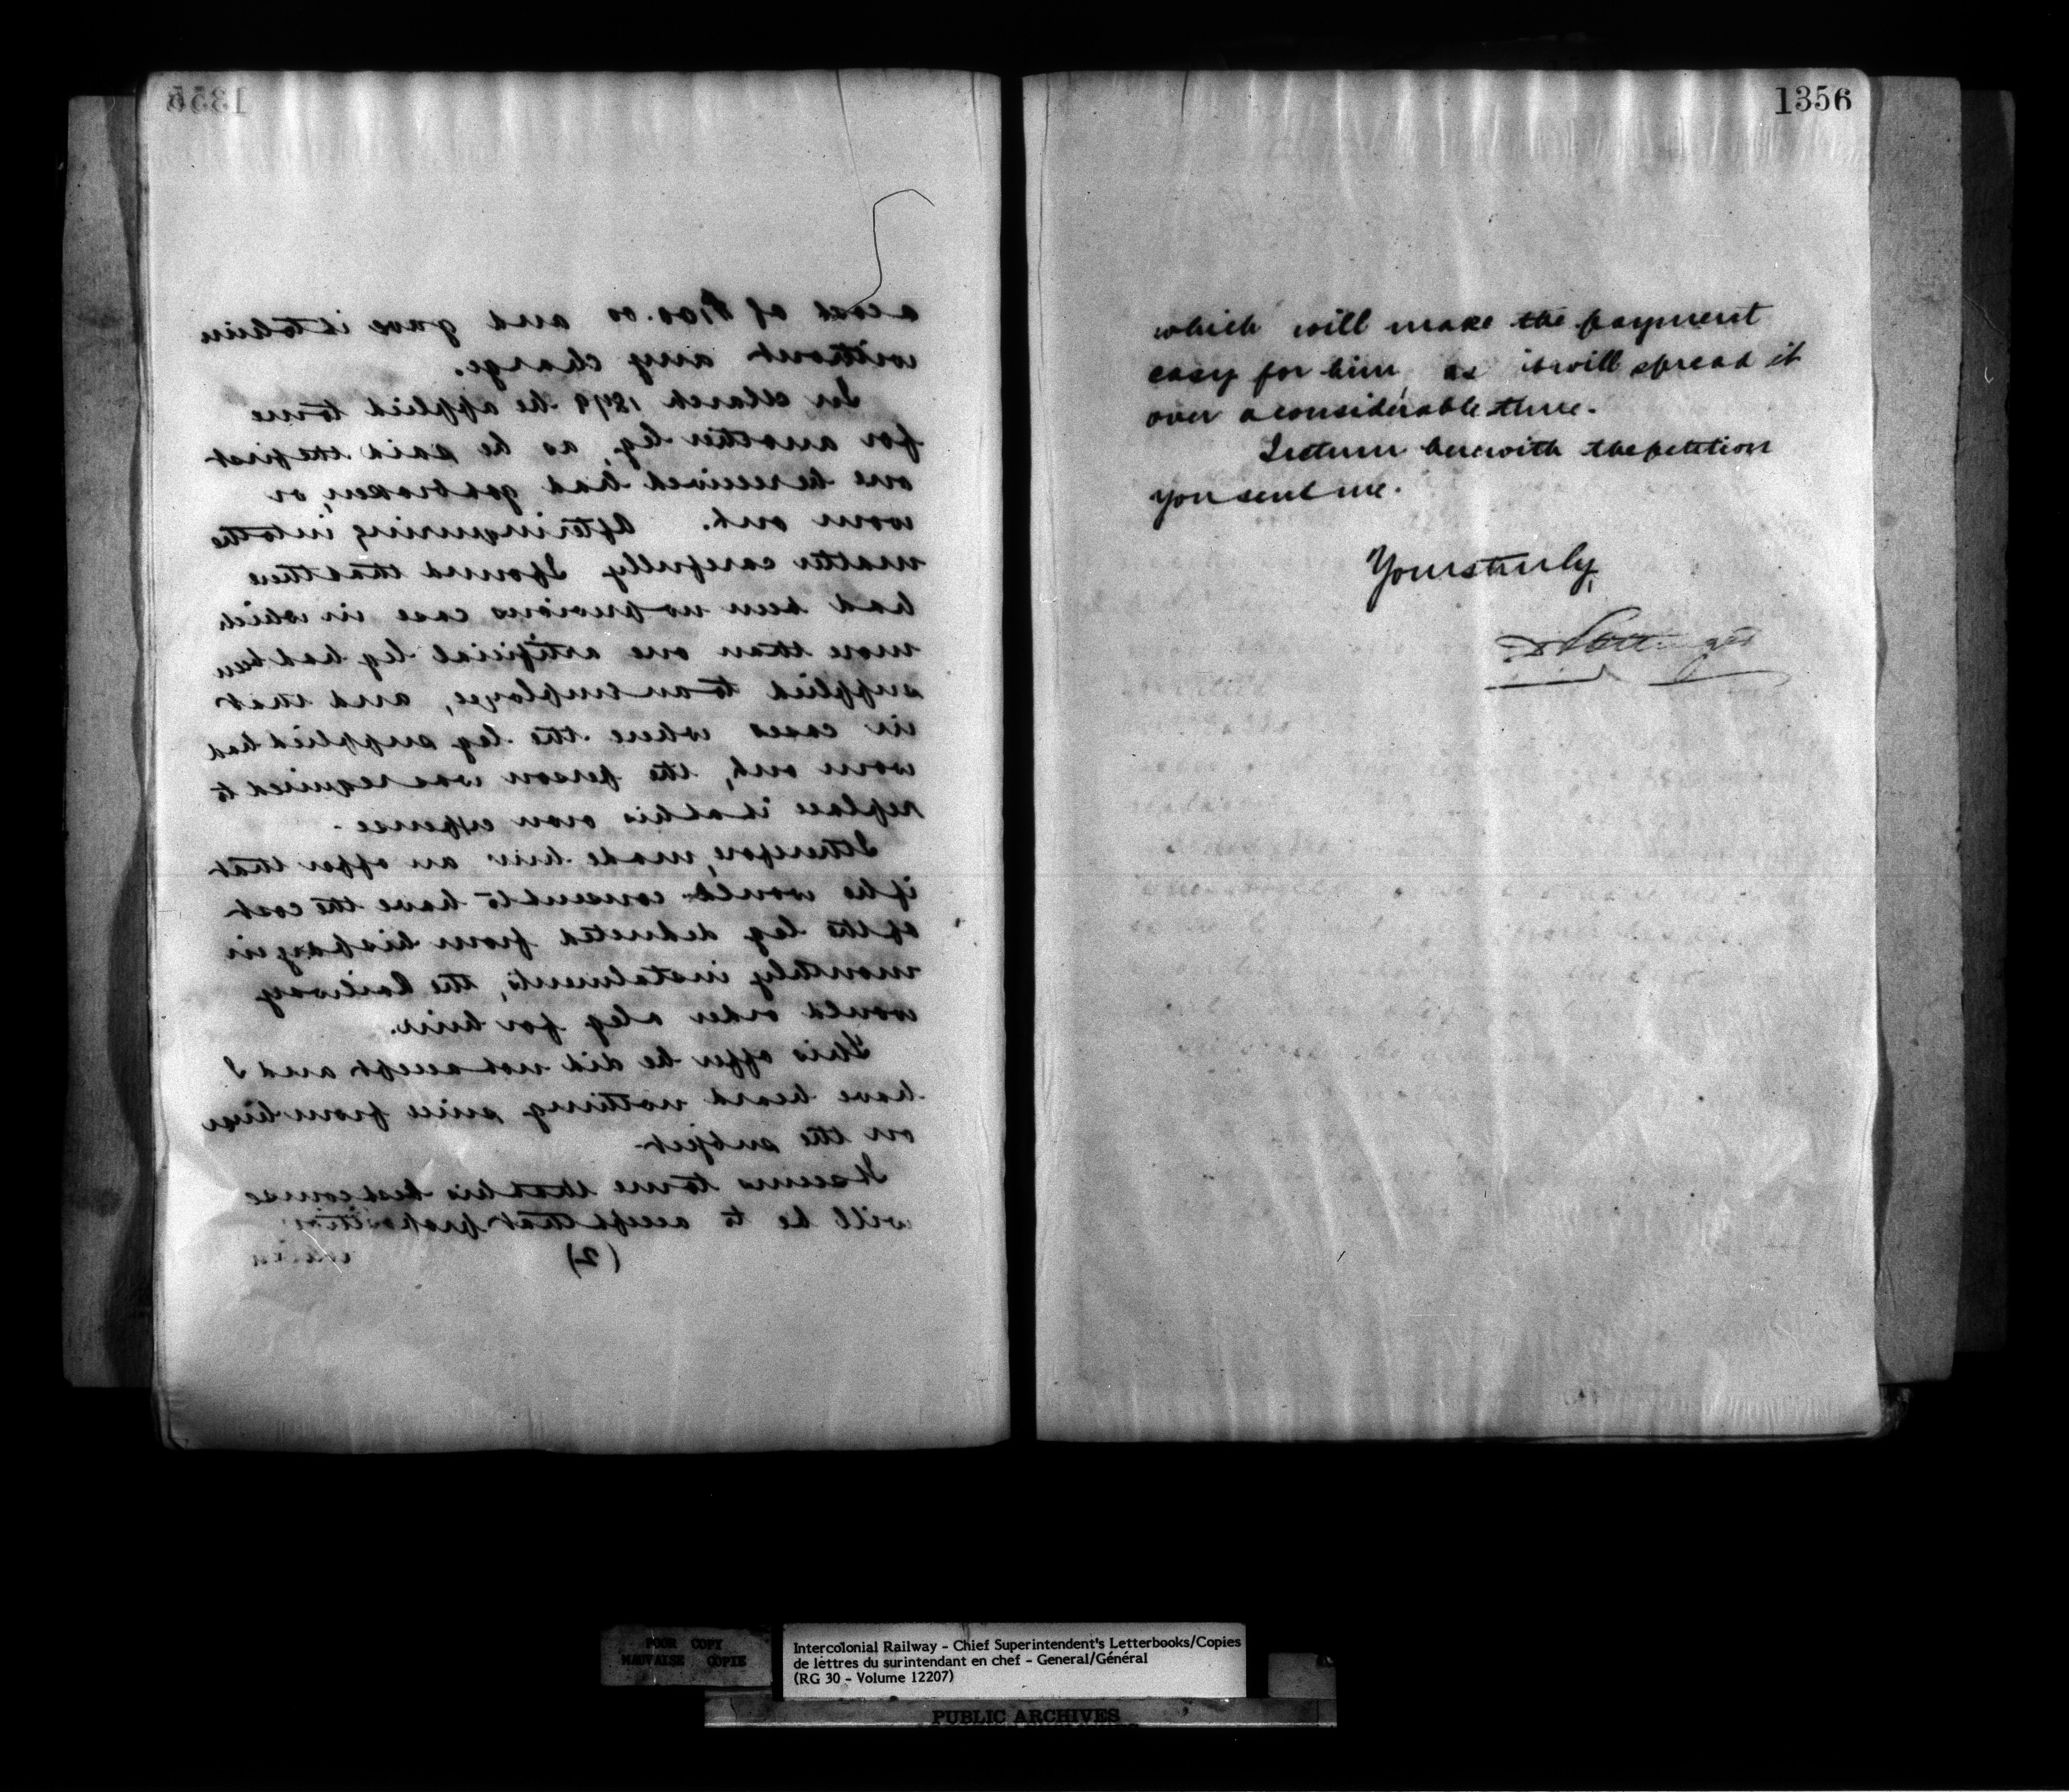 1355
a cost of $100.00 and gave it to him
without any charge.
In March 1879 he applied to me
for another leg, as he said the first
one he received had got broken, or
worn out. After inquiring into the
matter carefully I found that there
had been no previous case in which
more than one artificial leg had been
supplied to an employee, and that
in cases where the leg supplied had
worn out, the person was required to
replace it at his own expense.
I therefore, made him an offer that
if he would consent to have the cost
of the leg deducted from his pay in
monthly instalments, the Railway
would order a leg for him.
This offer he did not accept and I
have heard nothing since from him
on the subject
It seems to me that his best course
will be to accept that proposition
(2) which
1356
which will make the payment
easy for him, as it will spread it
over a considerable time.
I return herewith the petition
you sent me.
Yours truly,
D Pottinger
POOR COPY
MAUVAISE COPIE
Intercolonial Railway - Chief Superintendent's Letterbooks/Copies
de lettres du surintendant en chef - General/Général
(RG 30 - Volume 12207)
PUBLIC ARCHIVES